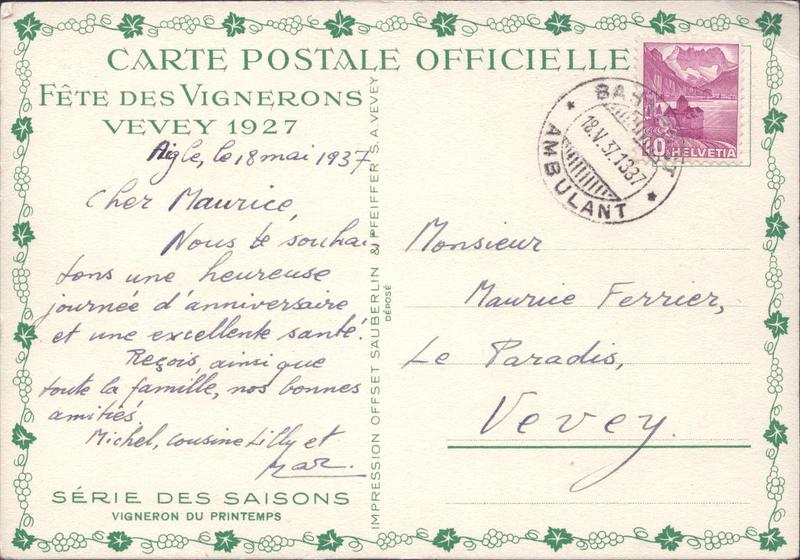 CARTE POSTALE OFFICIELLE
FÊTE DES VIGNERONS
VEVEY 1927
Aigle, le 18 mai 1937
Cher Maurice,
Nous te souhai-
tons une heureuse
journée d'anniversaire
et une excellente santé.
Reçois, ainsi que
toute la famille, nos bonnes
amitiés
Michel, cousine Lilly et
SÉRIE DES SAISONS
VIGNERON DU PRINTEMPS
IMPRESSION OFFSET SÄUBERLIN & PFEIFFER S.A. VEVEY
DÉPOSÉ
AMBULANT
18.V.37.1337
10 HELVETIA
Monsieur
Maurice Ferrier,
Le Paradis,
Vevey.